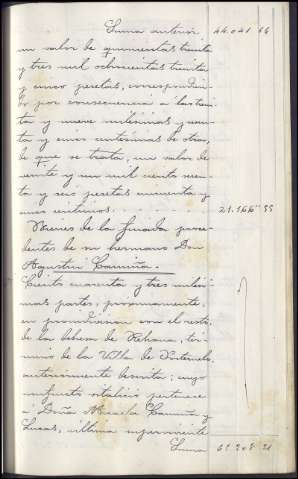 Suma anterior 44.041 64
un valor de quinientas treinta
y tres mil ochocientas treinta
y cinco pesetas, correspondien-
do por consecuencia á las trein-
ta y nueve milésimas y cua-
ta y cinco centésimas de otra,
de que se trata, un valor de
veinte y un mil ciento sesen-
ta y seis pesetas cincuenta y
cinco céntimos. 21.166 55
Bienes de la finada proce-
dentes de su hermano Don
Agustín
Ciento cuarenta y tres milési-
mas partes, proximamente,
en proindivision con el resto,
de la dehesa de tér-
mino de la Villa de
anteriormente descrita; cuyo
usufructo vitalicio pertenece
á Doña y
Lucas, última superviviente
Suma 21